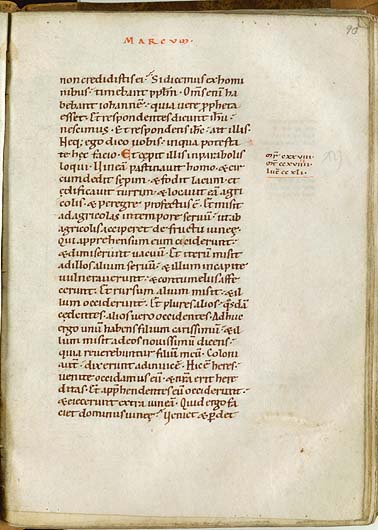 MARCUM
90
non credidistis ei. Si dicimus ex homi
nibus. timebant pplm. Oms enim ha
bebant iohannem. quia vere ppheta
esset. Et respondentes dicunt ihu.
nescimus. Et respondens ihs. ait illis.
Neq; ego dico vobis. in qua potesta
te hec facio. Et cepit illis in parabolis
loqui. Vineam pastinavit homo. & cir
cumdedit sepem. & fodit lacum. et
edificavit turrim. & locavit eam agri
colis. & peregre profectus e. Et misit
ad agricolas in tempore servum. ut ab
agricolis acciperet de fructu vineę.
Qui apprehensum eum ceciderunt.
& dimiserunt vacuum. Et iterum misit
ad illos alium servum. & illum in capite
vulneraverunt. & contumeliis affe
cerunt. Et rursum alium misit. & il
lum occiderunt. Et plures alios. quosdam
cedentes. alios vero occidentes. Adhuc
ergo unum habens filium carissimum. & il
lum misit ad eos novissimum dicens.
quia reverebuntur filium meum. Coloni
autem dixerunt adinvicem. Hic est heres.
venite occidamus eum. & nra erit here
ditas. Et apprehendentes eum occiderunt.
& eiecerunt extra vineam. Quid ergo fa
ciet dominus vineę. Veniet & perdet
mr cxxviii
mt ccxviiii
luc ccxli